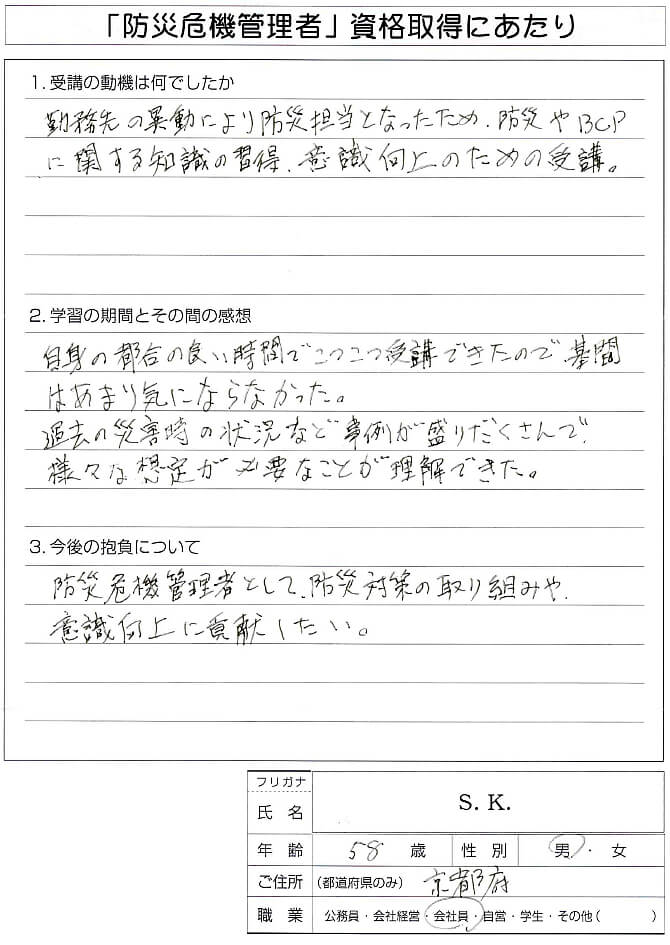 「防災危機管理者」資格取得にあたり
1. 受講の動機は何でしたか
勤務先の異動により防災担当となったため、防災やBCP
に関する知識の習得、意識向上のための受講。
2. 学習の期間とその間の感想
自身の都合の良い時間でこつこつ受講できたので 期間
はあまり気にならなかった。
過去の災害時の状況など事例が盛りだくさんで、
様々な想定が必要なことが理解できた。
3. 今後の抱負について
防災危機管理者として、防災対策の取り組みや、
意識向上に貢献したい。
フリガナ
氏 名 S. K.
年 齢 58 歳 性 別 男 ・ 女
ご住所 (都道府県のみ) 京都府
職 業 公務員・会社経営・会社員・自営・学生・その他( )